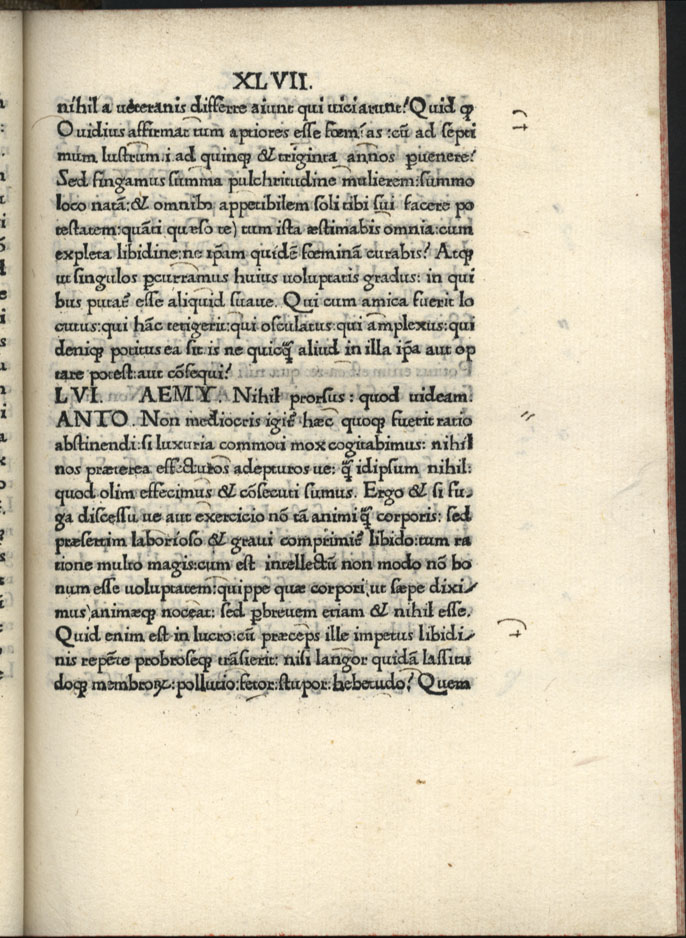 XLVII.
nihil a ueteranis differre aiunt qui uiciarunt? Quid ꝙ
Ouidius affirmat tum aptiores esse fœmĩas: cũ ad septi
mum lustrum.i ad quinqꝫ & triginta annos ꝑuenere?
Sed fingamus summa pulchritudine mulierem: summo
loco natã: & omnibꝫ appetibilem soli tibi sui facere po
testatem: quãti quæso te) tum ista æstimabis omnia: cum
expleta libidine: ne ip̃am quidẽ fœminã curabis? Atqꝫ
ut singulos ꝑcurramus huius uoluptatis gradus: in qui
bus putaẽ esse aliquid suaue. Qui cum amica fuerit lo
cutus: qui hãc tetigerit: qui osculatus: qui amplexus: qui
deniqꝫ potitus ea sit is ne quicq̃ꝫ aliud in illa ip̃a aut op
tare potest: aut cõsequi?
LVI. AEMY. Nihil prorsus: quod uideam.
ANTO. Non mediocris igiẽ hæc quoqꝫ fuerit ratio
abstinendi: si luxuria commoti mox cogitabimus: nihil
nos præterea effecturos adepturos ue: q̃ꝫ idipsum nihil:
quod olim effecimus & cõsecuti sumus. Ergo & si fu-
ga discessu ue aut exercicio nõ tã animi q̃ꝫ corporis: sed
præsertim laborioso & graui comprimiẽ libido: tum ra
tione multo magis: cum est intellectũ non modo nõ bo
num esse uoluptatem: quippe quæ corpori ut sæpe dixi-
mus) animæqꝫ noceat: sed ꝑbreuem etiam & nihil esse.
Quid enim est in lucro: cũ præceps ille impetus libidi-
nis repẽte probroseqꝫ trãsierit: nisi langor quidã lassitu
doqꝫ membroꝝ: pollutio: fetor: stupor: hebetudo? Quem